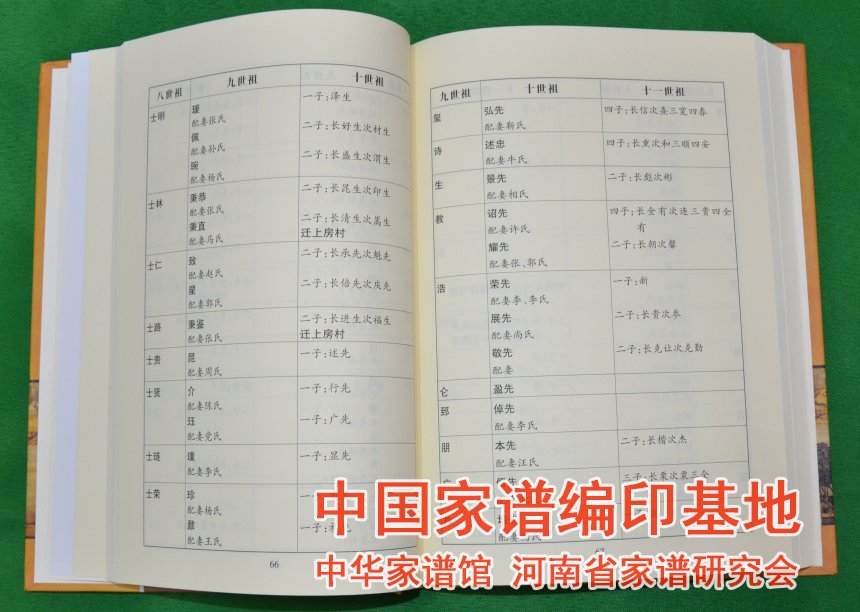 八世祖 九世祖 十世祖
士明 瑗 一子:泽生
配妻张氏
佩 二子:长好生次材生
配妻孙氏
琬 二子:长盛生次渭生
配妻杨氏
士林 秉恭 二子:长昆生次印生
配妻张氏
秉直 二子:长清生次嵩生
配妻马氏 迁上房村
士仁 致 二子:长承先次魁先
配妻赵氏
星 二子:长倍先次庆先
配妻郭氏
士路 秉鉴 二子:长进生次福生
配妻张氏 迁上房村
士贵 昆 一子:述先
配妻周氏
士贤 介 一子:行先
配妻陈氏
珏 一子:广先
配妻党氏
士琏 璞 一子:显先
配妻李氏
士荣 珍 一子:
配妻杨氏
鼐 一子:
配妻王氏
66
九世祖 十世祖 十一世祖
玺 弘先 四子:长信次熹三宽四春
配妻靳氏
诗 述忠 四子:长重次和三顺四安
配妻牛氏
生 景先 二子:长彪次彬
配妻相氏
教 诏先 四子:长金有次连三贵四全
配妻许氏 有
耀先 二子:长朝次馨
配妻张、郭氏
浩 荣先 一子:新
配妻李、李氏
展先 二子:长贵次参
配妻尚氏
敬先 二子:长克让次克勤
配妻
仑 盈先
郅 倬先
配妻李氏
朋 本先 二子:长楷次杰
配妻汪氏
三子:长栗次裳三全
中国家谱编印基地
中华家谱馆 河南省家谱研究会